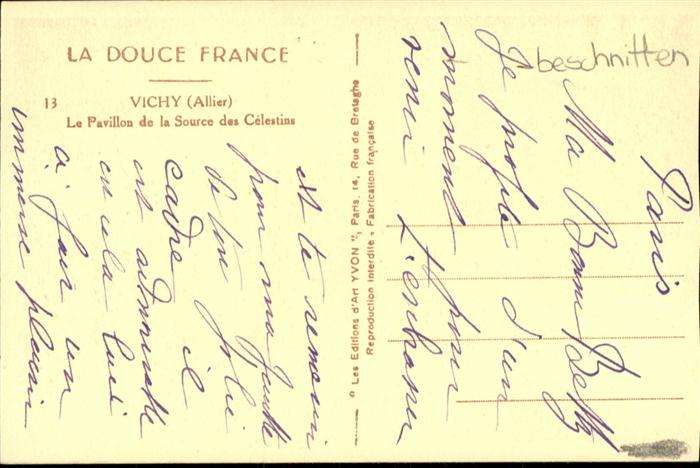 LA DOUCE FRANCE
13 VICHY (Allier)
Le Pavillon de la Source des Célestins
© Les Editions d'Art YVON", Paris, 14, Rue de Bretagne
Reproduction interdite - Fabrication française
-beschnitten
Paris
Ma Bonne Betty
Je profite d'un
moment pour
venir t'embrasser
et te remercier
pour ma gentille
et
cadre il
est admirable
en cela lui
a fait un
immense plaisir